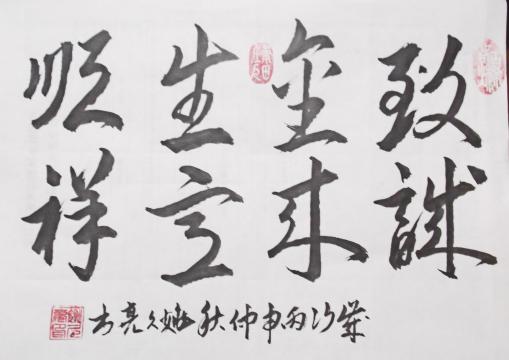 致誠
金
生意
順祥
歲次丙申仲秋姚久亮书